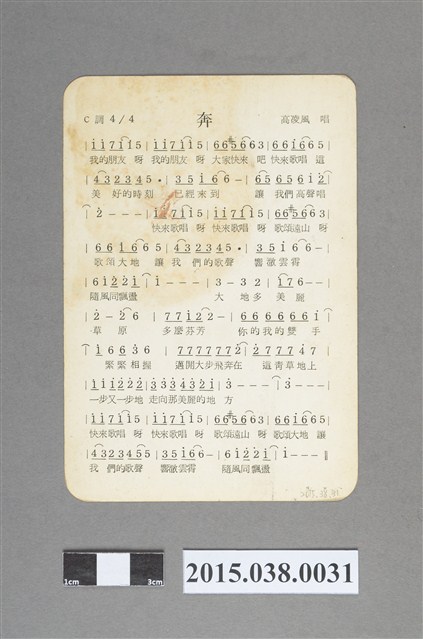 C調 4/4 奔 高凌風 唱
|i i 7 i i 5 |i i 7 i i 5 |6 6 5 6 6 3 |6 6 i 6 6 5|
我的朋友 呀 我的朋友 呀 大家快來 吧 快來歌唱 這
|4 3 2 3 4 5 · |3 5 i 6 6 – |6 5 6 5 6 i 2|
美 好的時刻 已經來到 讓 我們高聲唱
|2 – – – |i i 7 i i 5 |i i 7 i i 5 |6 6 5 6 6 3|
快來歌唱 呀 快來歌唱 呀 歌頌遠山 呀
6 6 i 6 6 5 |4 3 2 3 4 5 · |3 5 i 6 6 – |
歌頌大地 讓 我 們的歌聲 響徹雲霄
|6 i 2 2 i |i – – – |3 – 3 2 |i 7 6 – |
隨風同飄盪 大 地多 美 麗
|2 – 2 6 |7 7 i 2 2 – |6 6 6 6 6 6 i|
草 原 多麼芬芳 你的我的雙 手
|i 6 6 3 6 |7 7 7 7 7 7 2 |2 7 7 7 4 7 |
緊緊相握 邁開大步飛奔在 這青草地上
|i i i 2 2 2 2 |3 3 3 4 3 2 i |2 – – i |3 – – – |
一步又一步地 走向那美麗的地 方
|i i 7 i i 5 |i i 7 i i 5 |6 6 5 6 6 3 |6 6 i 6 6 5|
快來歌唱 呀 快來歌唱 呀 歌頌遠山 呀 歌頌大地 讓
|4 3 2 3 4 5 5 |3 5 i 6 6 – |6 i 2 2 i |i – – – ‖
我 們的歌聲 響徹雲霄 隨風同飄盪
1cm 3cm
2015.038.0031